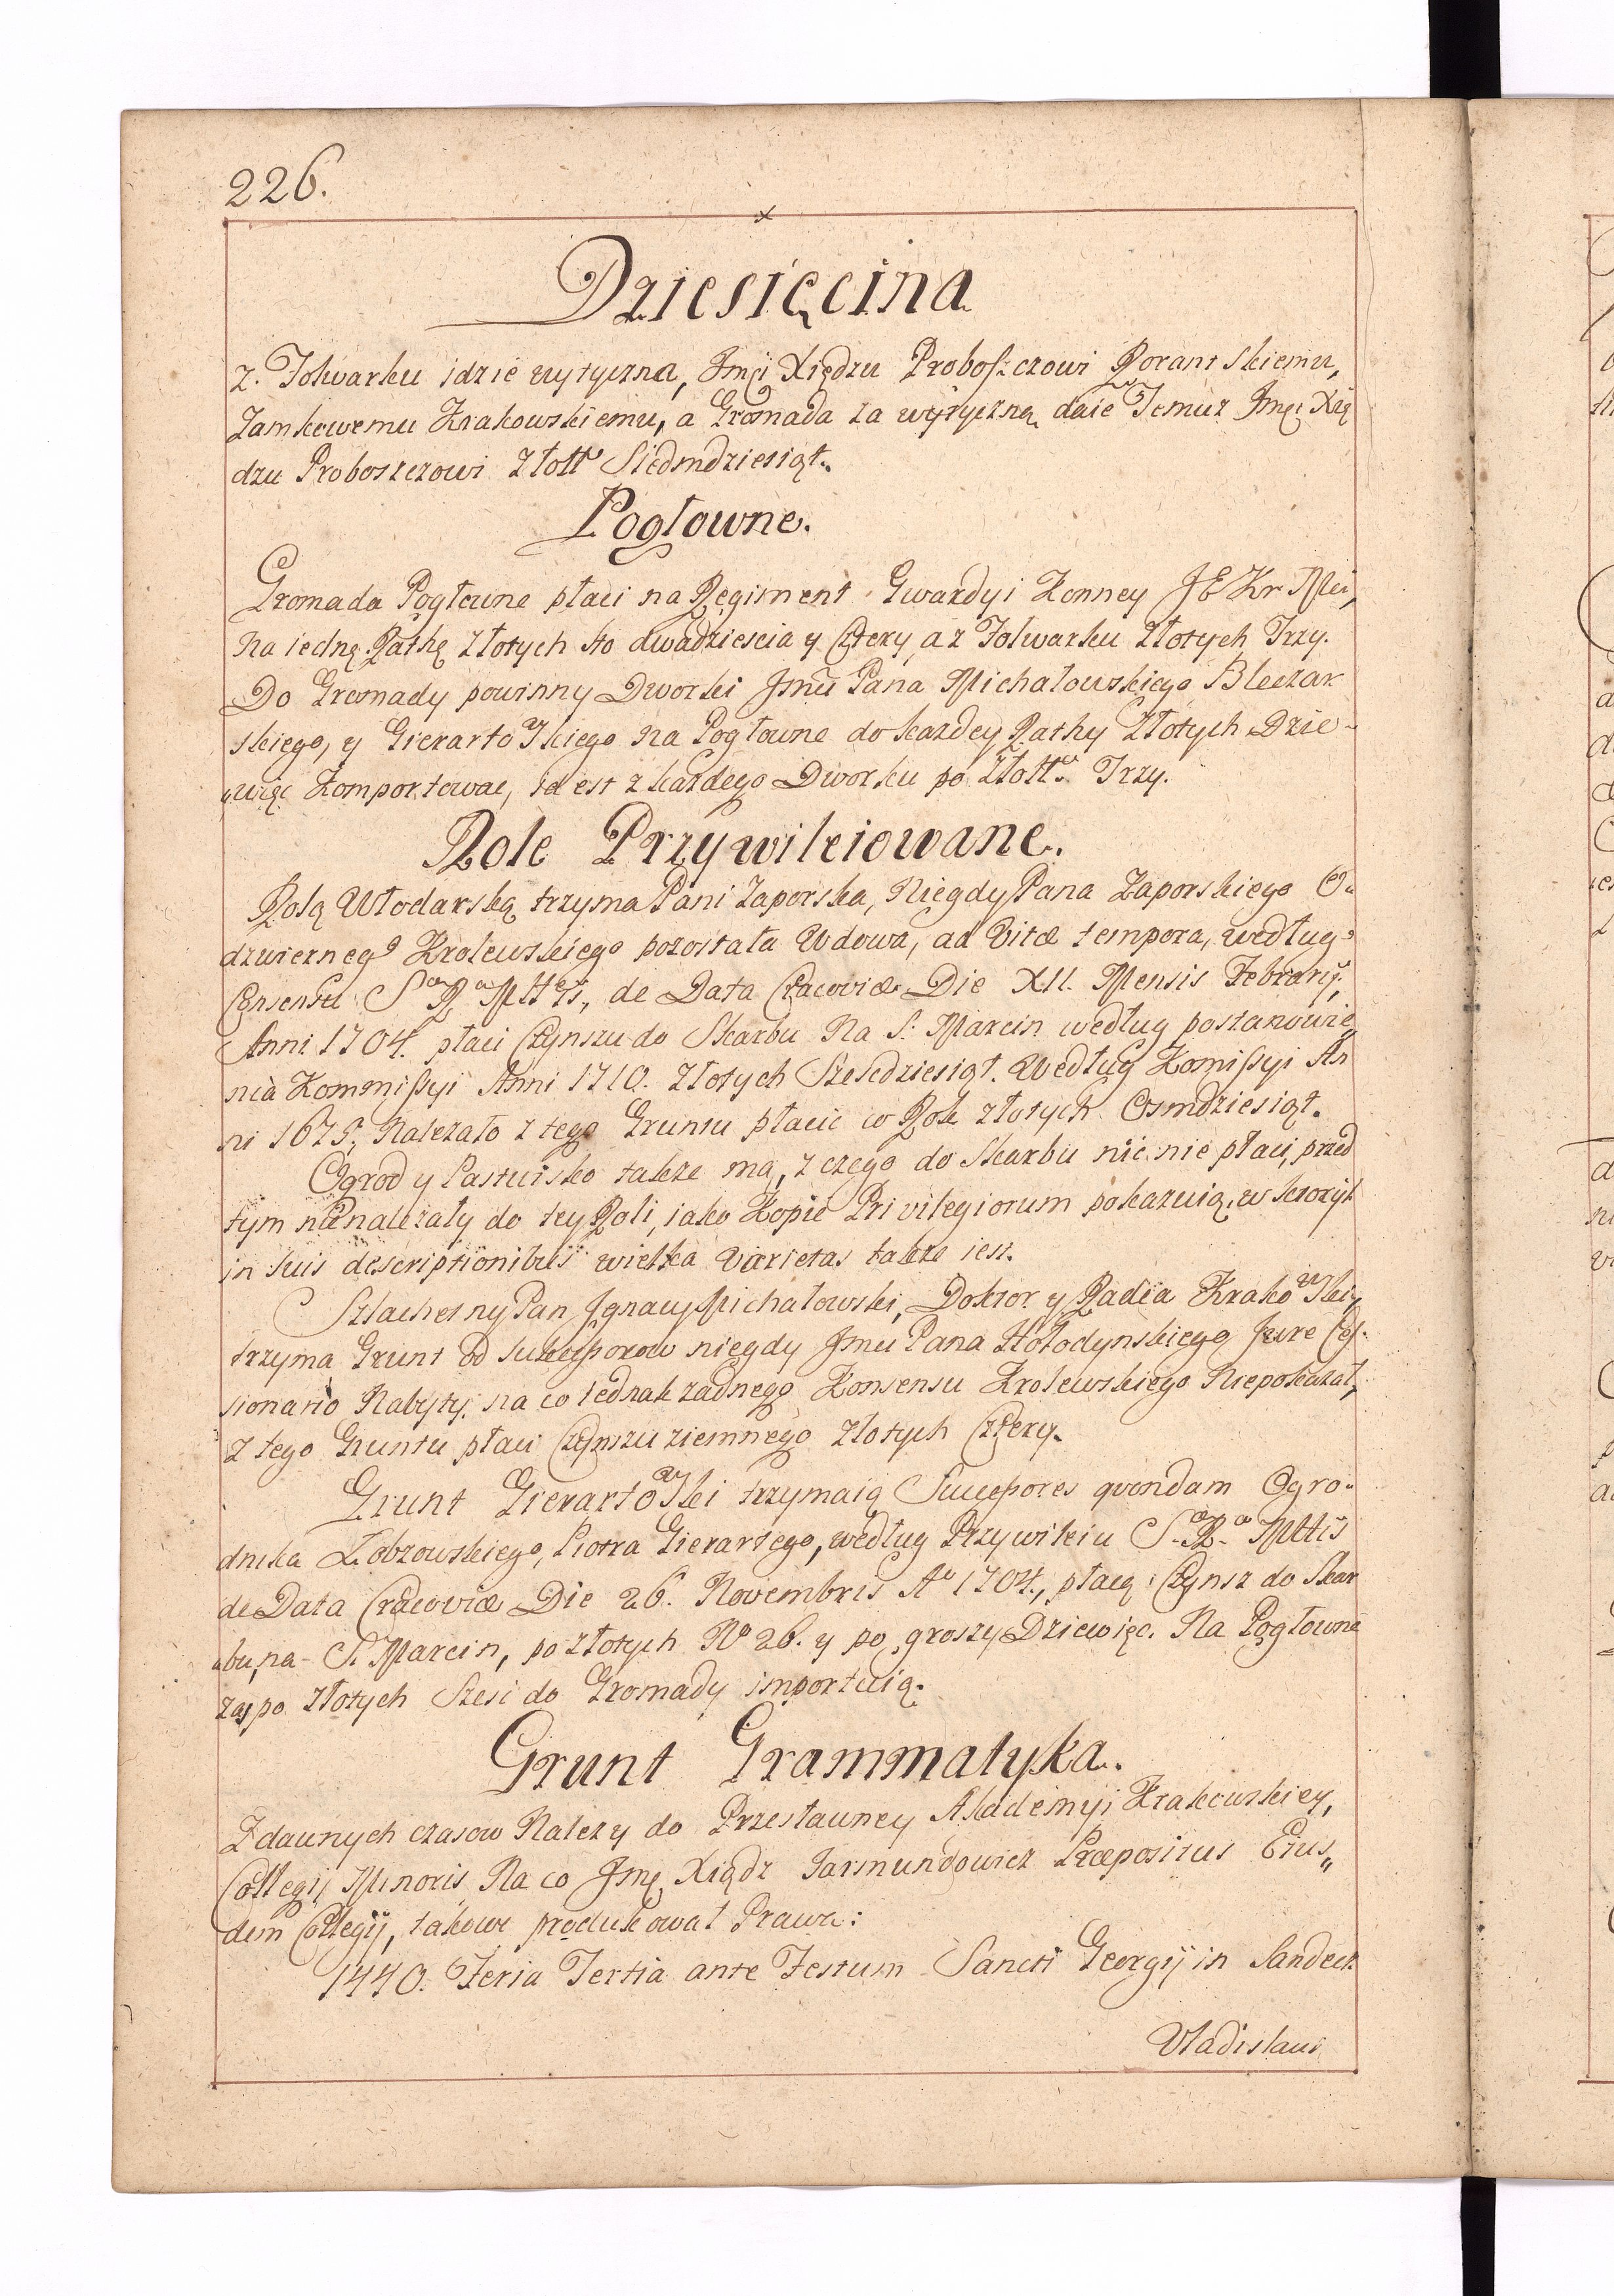 226.
Dziesięcina
z. Folwarku idzie wytyczna, Jmci Xiędzu Proboszczowi Rorantskiemu,
Zamkowemu Krakowskiemu, a Gromada za wytyczną daie Temuż Jmci Xię
dzu Proboszczowi Złott Siedmdziesiąt.
Pogłowne.
Gromada Pogłowne płaci na Regiment Gwardyi Konney J K Mci,
na iednę Rathę Złotych sto dwadziescia y Cztery, a z Folwarku Złotych Trzy.
Do Gromady powinny Dworki Jmci Pana Michałowskiego Bleczar
skiego, y Gierartowskiego na Pogłowne do kazdey Rathy Złotych Dzie-
„więć Komportować, id est z kazdego Dworku po Złott. Trzy.
Role Przywileiowane.
Rolą Włodarską trzyma Pani Zaporska, Niegdy Pana Zaporskiego O„
dzwiernego Krolewskiego pozostała Wdowa, ad Vitæ tempora, według
Consensu S R Mttis, de Data Cracoviæ Die XII. Mensis Februarij,
Anni 1704. płaci Czynszu do Skarbu Na S: Marcin według postanowie„
nia Kommissyi Anni 1710. Złotych Szescdziesiąt. Według Komissyi An
ni 1675, Nalezało z tego Gruntu płacić co Rok złotych Osmdziesiąt.
Ogrod y Pastwisko takze ma, z czego do Skarbu nic nie płaci, przed
tym nie nalezały do tey Roli, iako Kopie Privilegiorum pokazuią, w ktorych
in suis descriptionibus wielka Varietas takze iest.
Szlachetny Pan Jgnacy Michałowski, Doktor y Radca Krakowski,
trzyma Grunt od Sukcessorow niegdy Jmci Pana Hołodynskiego Jure Ces-
sionario Nabyty, na co iednak zadnego Konsensu Krolewskiego Niepokazał,
z tego Gruntu płaci Czynszu ziemnego Złotych Cztery.
Grunt Gierartowski trzymaią Successores qvondam Ogro-
dnika Łobzowskiego, Piotra Gierartego, według Przywileiu S. R. Mttis
de Data Cracoviæ Die 26. Novembris Aº 1704., płacą Czynsz do Skar
„bu, na S. Marcin, po złotych Nº 26. y po groszy Dziewięć. Na Pogłowne
zas po Złotych Szesć do Gromady importuią.
Grunt Grammatyka.
Z dawnych czasow Nalezy do Przesławney Akademyi Krakowskiey,
Collegij Minoris, Na co Jmc Xiądz Jarmundowicz Præpositus Eius„
dem Collegij, takowe produkował Prawa:
1440. Feria Tertia ante Festum Sancti Georgij in Sandecz
Vladislaus